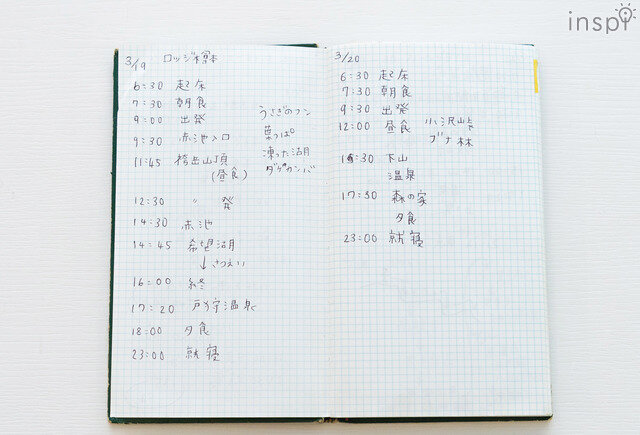 inspi
3/19 ロッジ榾木
6:30 起床
7:30 朝食
9:00 出発
9:30 赤池入口
11:45 袴岳山頂
(昼食)
うさぎのフン
葉っぱ
凍った湖
ダケカンバ
12:30 〃 発
14:30 赤池
14:45 希望湖
↓さつえい
16:00 終
17:20 戸狩温泉
18:00 夕食
23:00 就寝
3/20
6:30 起床
7:30 朝食
9:30 出発
12:00 昼食 小沢峠
ブナ林
15:30 下山
温泉
17:30 森の家
夕食
23:00 就寝